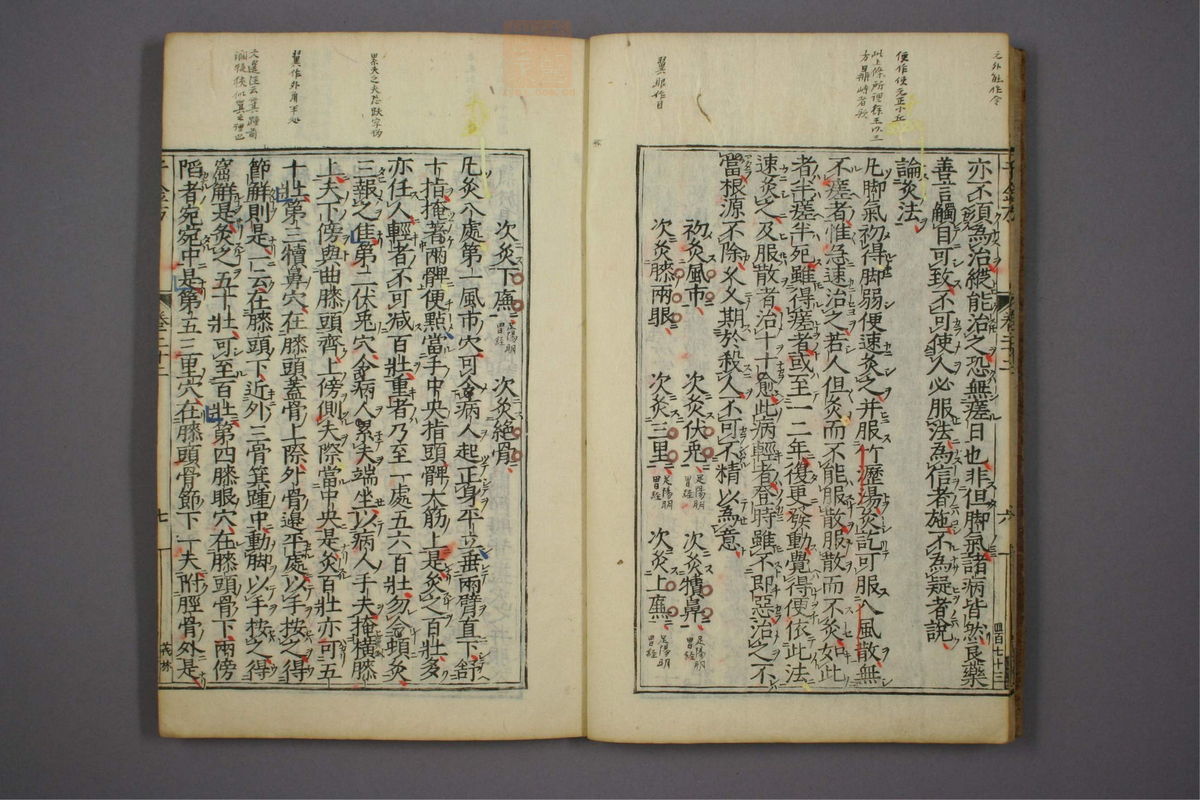 亦不須為治縱能治之恐無瘥日也非但脚氣諸病皆然良藥
善言觸目可致不可使人必服法為信者施不為疑者說
論灸法
凡脚氣初得脚弱便速灸之并服竹瀝湯灸訖可服八風散無
不瘥者惟急速治之若人但灸而不能服散服散而不灸如此
者半瘥半死雖得瘥者或至一二年復更發動覺得便依此法
速灸之及服散者治十十愈此病輕者登時雖不即惡治之不
當根源不除久久期於殺人不可不精以為意
初灸風市 次灸伏兎 足陽明胃経 次灸犢鼻 足陽明胃経
次灸膝兩眼 次灸三里 足陽明胃経 次灸上廉 足陽明胃経
次灸下廉 足陽明胃経 次灸絶骨
凡灸八處第一風市穴可令病人起正身平立垂兩臂直下舒
十指掩著兩髀便點當手中央指頭髀大筋上是灸之百壯多
亦任人輕者不可減百壯重者乃至一處五六百壯勿令頓灸
三報之佳第二伏兎穴令病人累夫端坐以病人手夫掩横膝
上夫下傍與曲膝頭齊上傍側夫際當中央是灸百壯亦可五
十壯第三犢鼻穴在膝頭蓋骨上際外骨邊平處以手按之得
節解則是一云在膝頭下近外三骨箕踵中動脚以手按之得
窟解是灸之五十壯可至百壯第四膝眼穴在膝頭骨下兩傍
陷者宛宛中是第五三里穴在膝頭骨節下一夫附脛骨外是
千金方
卷二十二
六
四百七十三
七
之外能作令
翼那作目
翼作外角平処
累夫之夫恐趺字訛